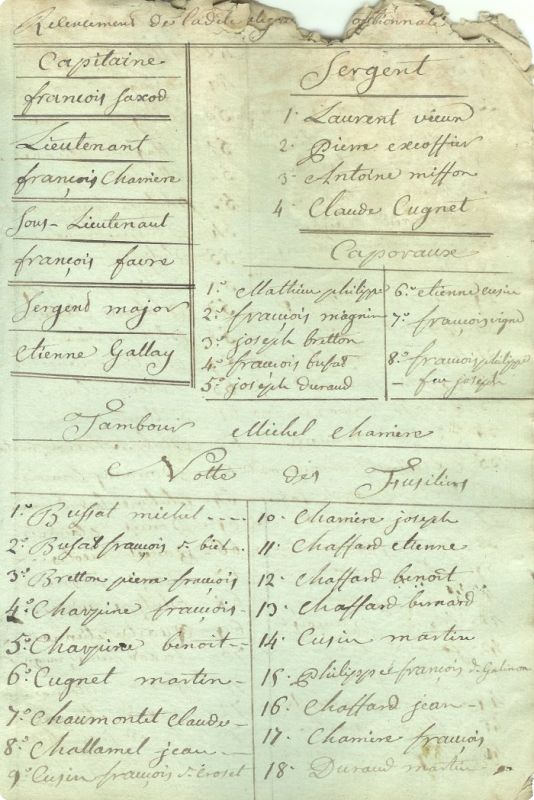 de ladite
Capitaine
françois Saxod
Lieutenant
françois Charriere
Sous-Lieutenant
françois favre
Sergend major
etienne Gallay
Sergent
1. Laurent
2. Pierre excoffier
3. Antoine miffon
4 Claude Cugnet
Caporaux
1.° Mathieu philippe
2.° françois magnin
3.° joseph bretton
4.° françois bufat
5.° joseph durand
6.° etienne cusin
7.° françois vigne
8.° francois philippe
feu joseph
Tambour Michel charriere
Notte des Fusiliers
1.° Bussat michel
2.° Bufat françois
3.° Bretton pierre françois
4.° françois
5.° benoit
6.° Cugnet martin
7.° Chaumontet claude
8.° Challamel jean
9.° Cusin françois
10. Charriere joseph
11. Chaffard etienne
12. Chaffard benoit
13. Chaffard bernard
14. Cusin martin
15. Philippe françois
16. Chaffard jean
17. Charriere françois
18. Durand martin